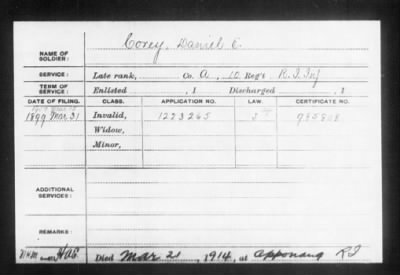 NAME OF SOLDIER: Corey, Daniel E.
SERVICE: Late rank, Co. A, 10 Reg't R.I. Inf
TERM OF SERVICE: Enlisted , 1 Discharged , 1
DATE OF FILING. CLASS. APPLICATION NO. LAW. CERTIFICATE NO.
1899 Mar. 31 Invalid, 1223265 985808
Widow,
Minor,
ADDITIONAL SERVICES:
REMARKS:
Died Mar 21, 1914, at Apponaug RI